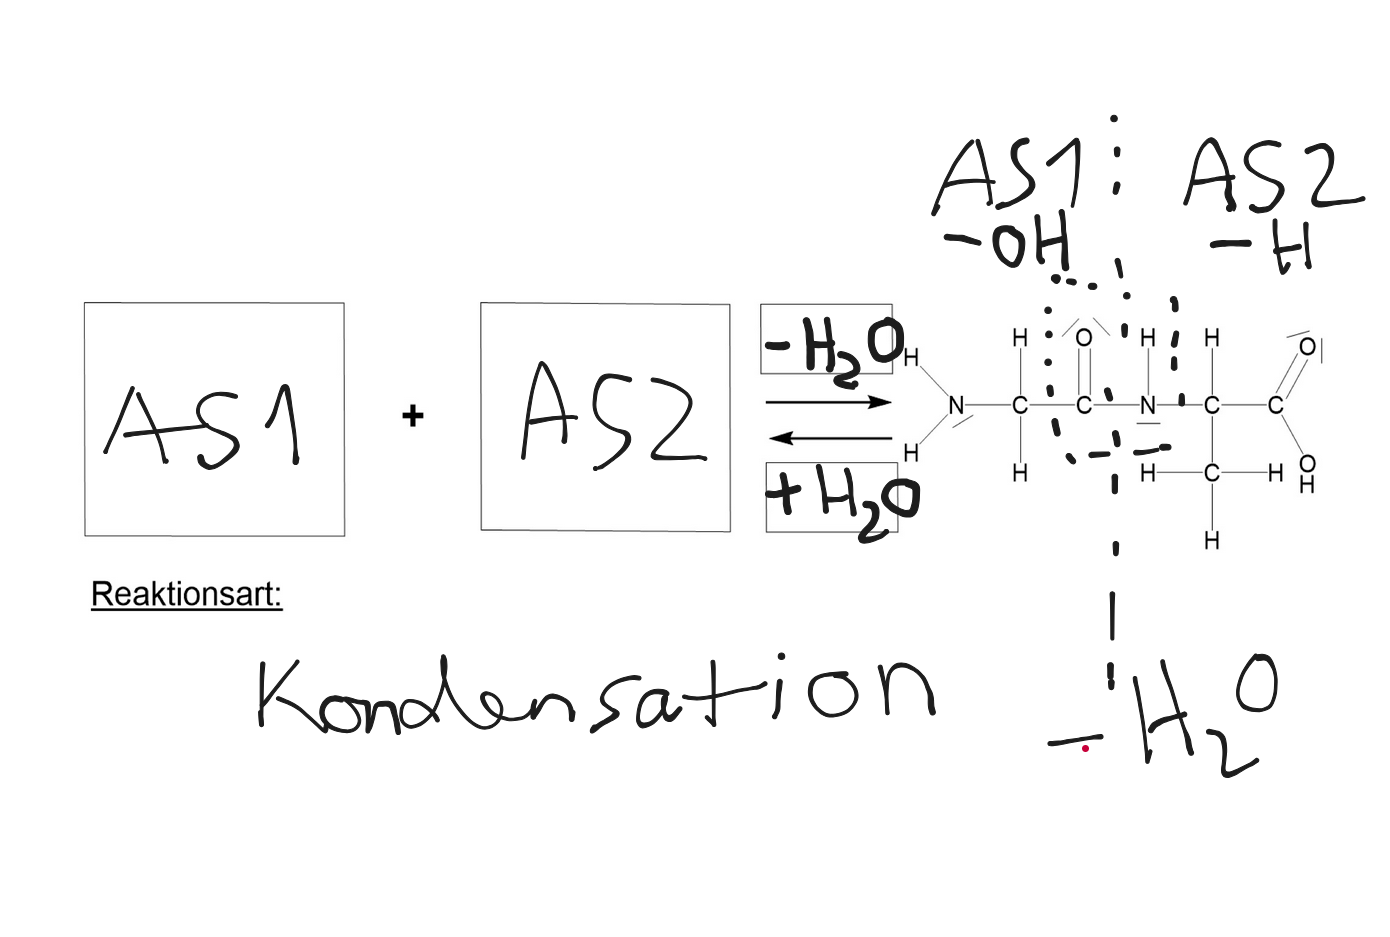 AS1 AS2
-OH -H
AS1 + AS2
-H₂O
+H₂O
H H H H O
H
N C C N C C
H
H H C H O
H
H
Reaktionsart:
Kondensation
-H₂O